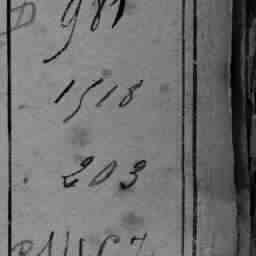 981
1518
203